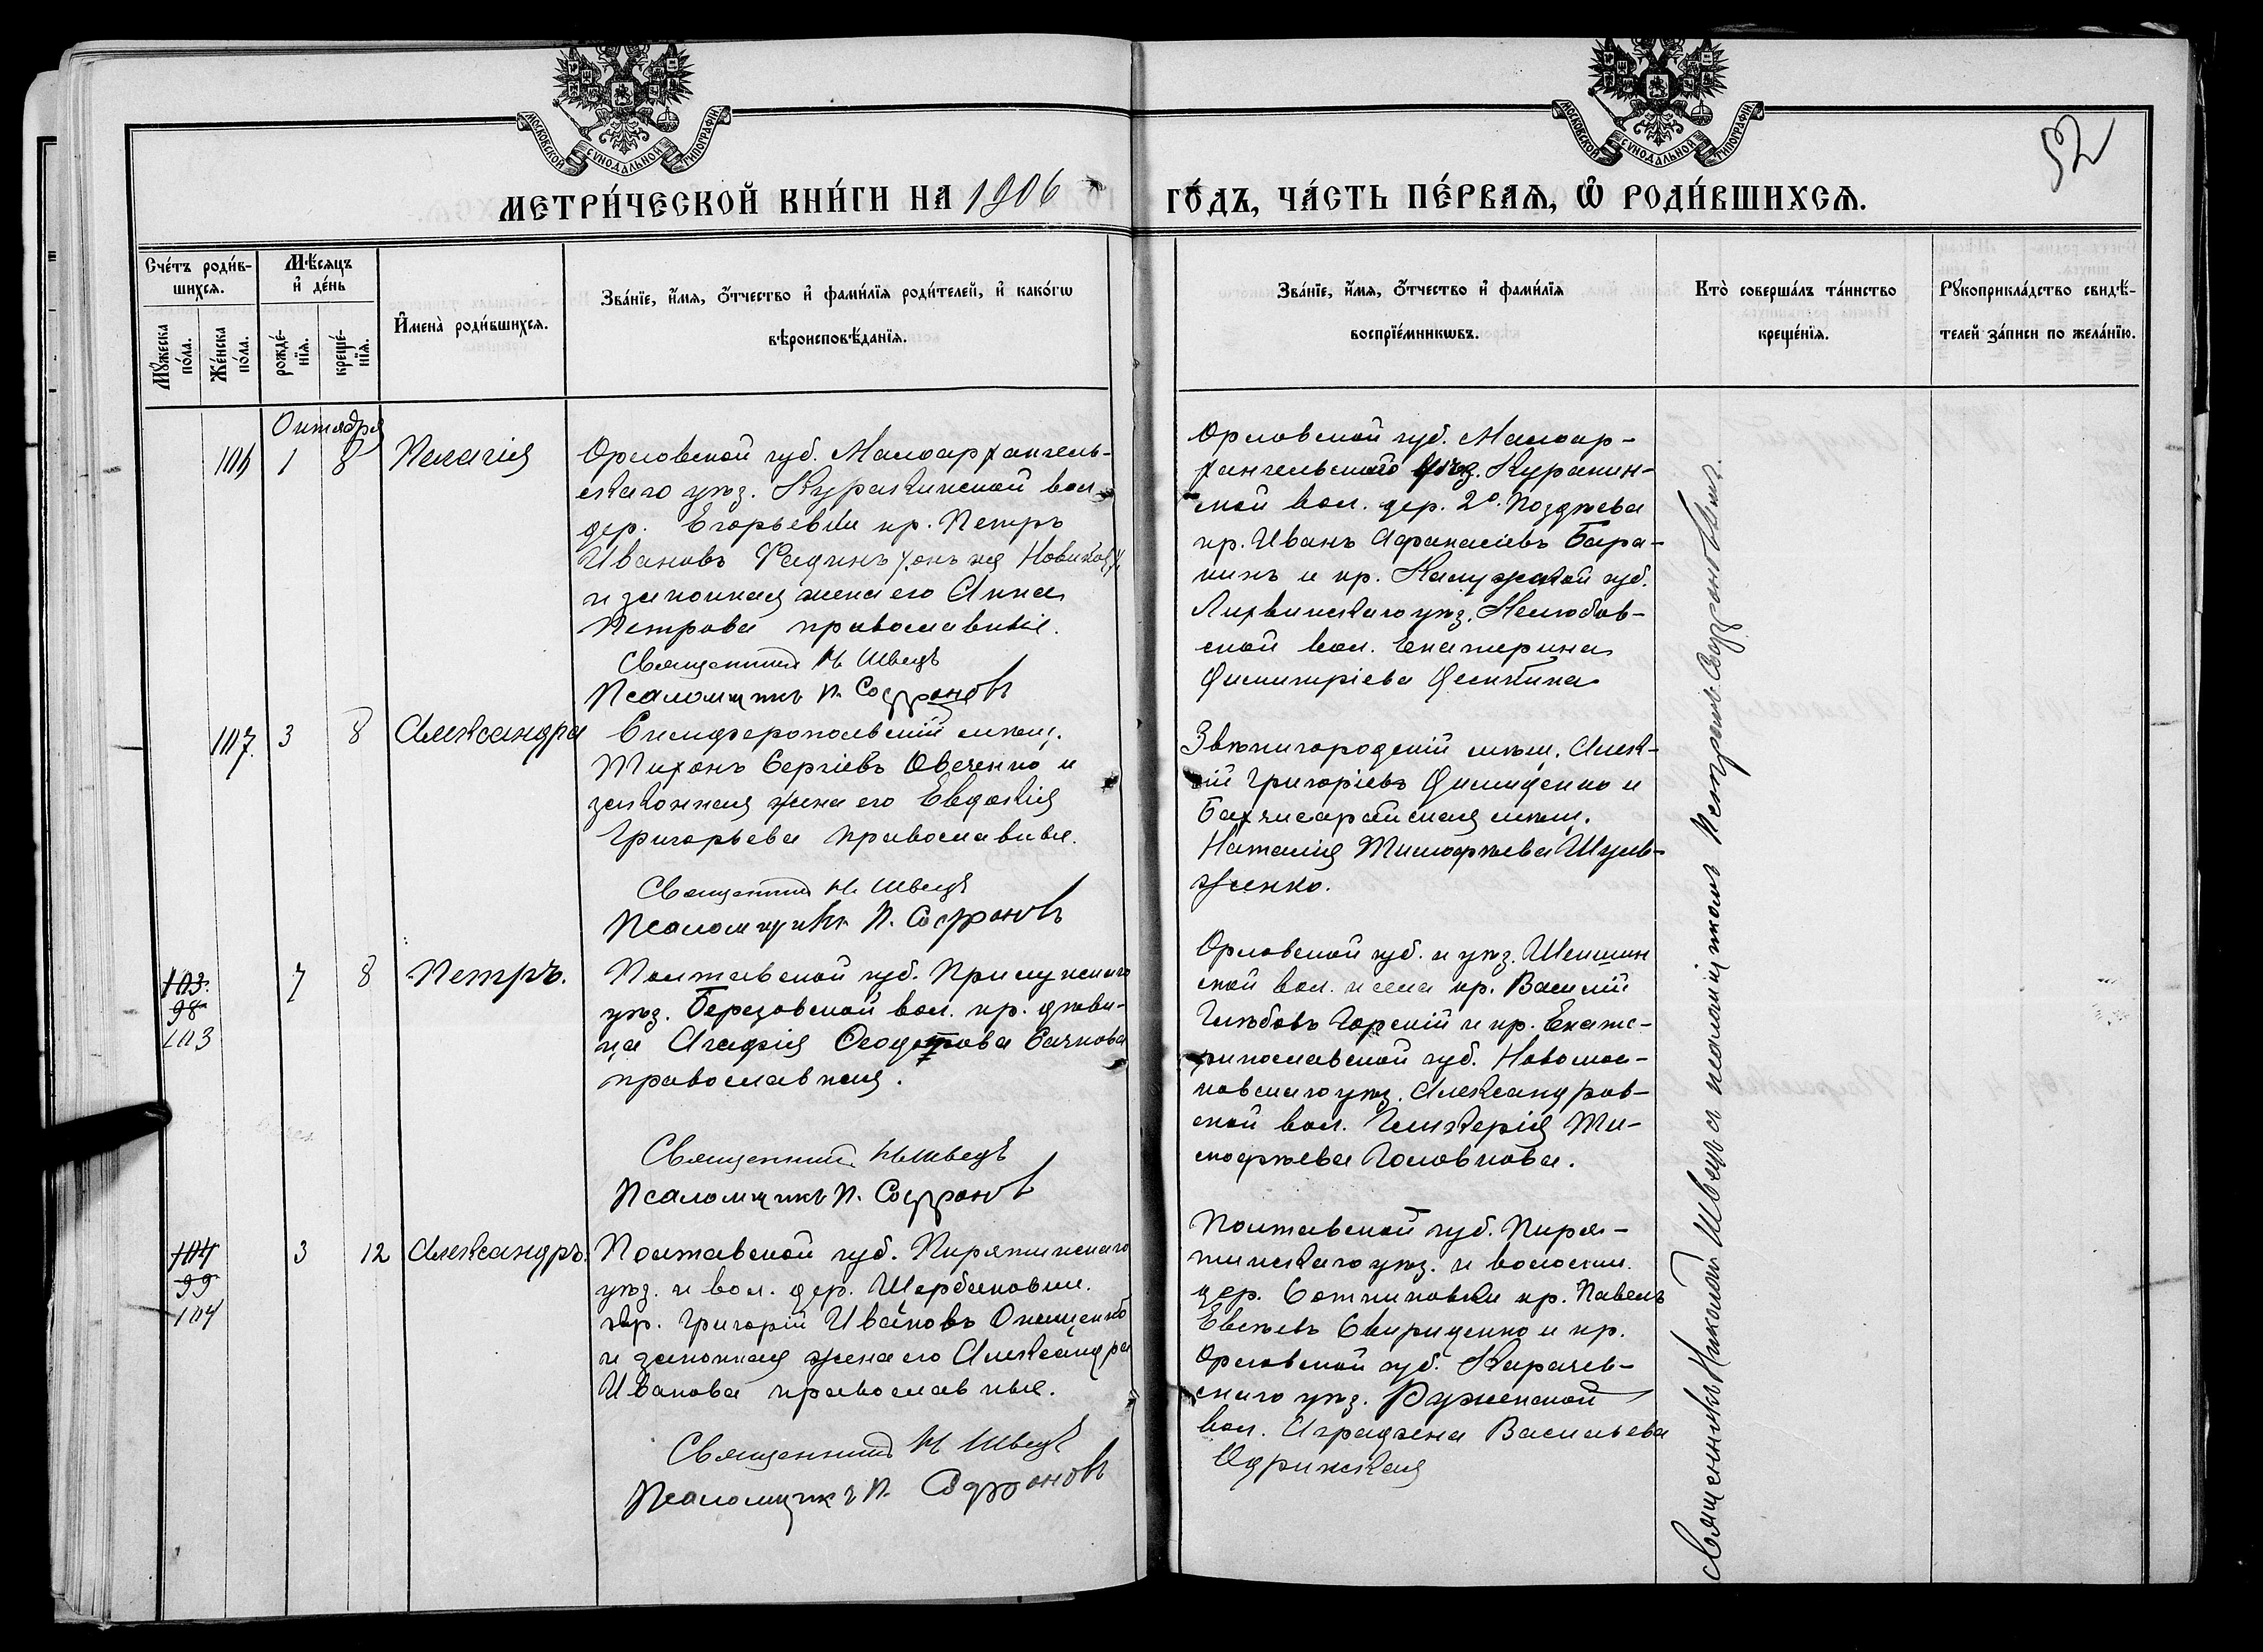 МОСКОВСКОЙ СУНОДАЛЬНОЙ ТИПОГРАФІИ
МОСКОВСКОЙ СУНОДАЛЬНОЙ ТИПОГРАФІИ
52
МЕТРИ́ЧЕСКОЙ КНИ́ГИ НА 1906
ГО́ДЪ, ЧА́СТЬ ПЕ́РВАЯ, Ѡ҆ РОДИ́ВШИХСЯ.
Сче́тъ роди́в-
шихся.
Мꙋ́жеска по́ла.
Же́нска по́ла.
Мѣ́сяцъ
и҆ де́нь
рожде́-
нїя.
креще́-
нїя.
И҆мена̀ роди́вшихся.
Зва́нїе, и҆́мя, ѻ҆́тчество и҆ фами́лїя роди́телей, и҆ како́гѡ
вѣроисповѣ́данїя.
Зва́нїе, и҆́мя, ѻ҆́тчество и҆ фами́лїя
воспрїе́мникѡвъ.
Кто̀ соверша́лъ та́инство
креще́нїя.
Рꙋкоприкла́дство свидѣ́-
телей за́писи по жела́нїю.
Октября
106 1 8 Пелагія
Орловской губ. Малоархангель-
скаго уѣз. Куракинской вол.
дер. Егорьевки кр. Петръ
Ивановъ Фадинъ онъ же Новиковъ
и законная жена его Анна
Петрова православные.
Священникъ Н. Швецъ
Псаломщикъ П. Софроновъ
Орловской губ. Малоар-
хангельскаго уѣз. Куракин-
ской вол. дер. 2º. Поздѣева
кр. Иванъ Афанасіевъ Бара-
нинъ и кр. Калужской губ.
Лихвинскаго уѣз. Нелюбов-
ской вол. Екатерина
Димитріева
107. 3 8 Александра
Симферопольскій мѣщ.
Тихонъ Сергіевъ Овеченко и
законная жена его Евдокія
Григорьева православные.
Священникъ Н. Швецъ
Псаломщикъ П. Софроновъ
Звѣнигородскій мѣщ. Алек-
сій Григоріевъ Димиденко и
Бахчисарайская мѣщ.
Наталія Тимофѣева Шуль-
женко.
103.
98
103
7 8 Петръ.
Полтавской губ. Прилукскаго
уѣз. Березовской вол. кр. дѣви-
ца Агафія Ѳеодотова Сачкова
православная.
Священникъ Н. Швецъ
Псаломщикъ П. Софроновъ
Орловской губ. и уѣз. Шеншин
ской вол. и села кр. Василій
Глѣбовъ Горскій и кр. Екате-
ринославской губ. Новомос-
ковскаго уѣз. Александров-
ской вол. Гликерія Ти-
мофѣева Головкова.
104
99
104
3 12 Александръ.
Полтавской губ. Пирятинскаго
уѣз. и вол. дер. Щербаковки.
кр. Григорій Ивановъ Онищенко
и законная жена его Александра
Иванова православные.
Священникъ Н. Швецъ
Псаломщикъ П. Софроновъ
Полтавской губ. Пиря-
тинскаго уѣз. и волости.
дер. Сотниковки кр. Павелъ
Евсѣевъ Свириденко и кр.
Орловской губ. Карачев-
скаго уѣз. Руженской
вол. Аграфена Васильева
Одринская
Священникъ Николай Швецъ съ псаломщикомъ Петромъ Софроновым.